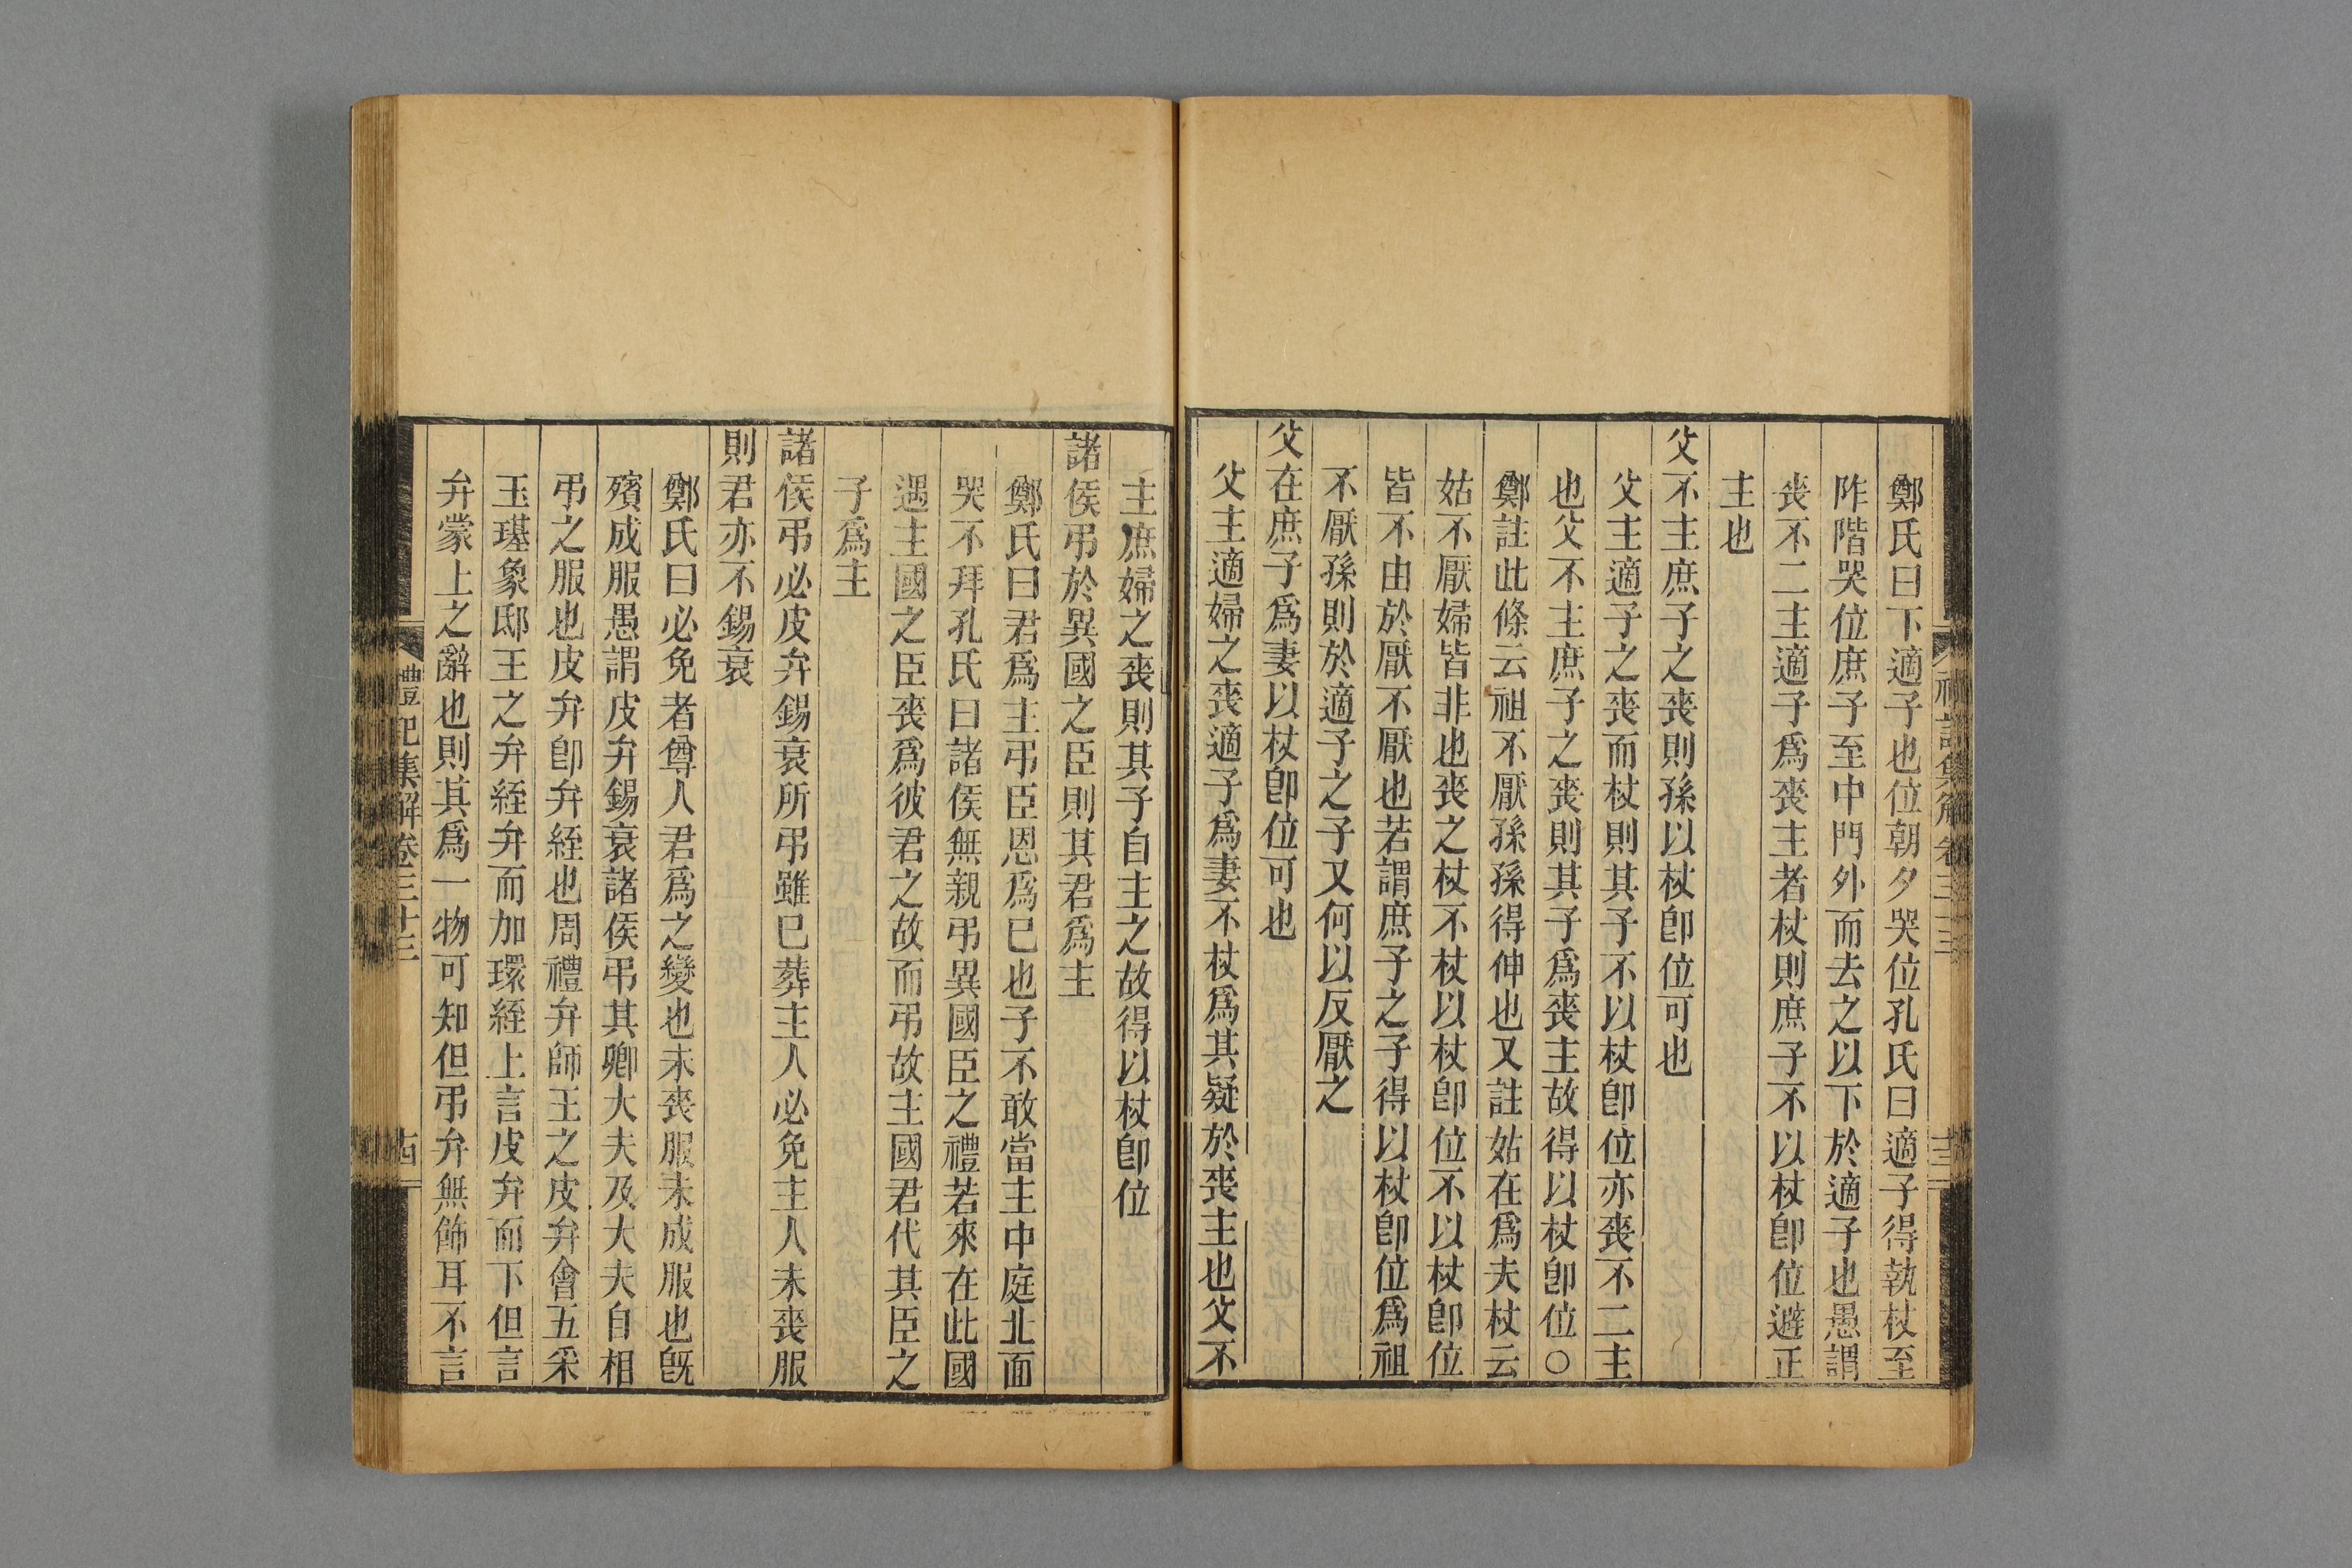 鄭氏曰下適子也位朝夕哭位孔氏曰適子得執杖至
阼階哭位庶子至中門外而去之以下於適子也愚謂
喪不二主適子爲喪主者杖則庶子不以杖卽位避正
主也
父不主庶子之喪則孫以杖卽位可也
父主適子之喪而杖則其子不以杖卽位亦喪不二主
也父不主庶子之喪則其子爲喪主故得以杖卽位○
鄭註此條云祖不厭孫孫得伸也又註姑在爲夫杖云
姑不厭婦皆非也喪之杖不杖以杖卽位不以杖卽位
皆不由於厭不厭也若謂庶子之子得以杖卽位爲祖
不厭孫則於適子之子又何以反厭之
父在庶子爲妻以杖卽位可也
父主適婦之喪適子爲妻不杖爲其疑於喪主也父不
主庶婦之喪則其子自主之故得以杖卽位
諸侯弔於異國之臣則其君爲主
鄭氏曰君爲主弔臣恩爲已也子不敢當主中庭北面
哭不拜孔氏曰諸侯無親弔異國臣之禮若來在此國
遇主國之臣喪爲彼君之故而弔故主國君代其臣之
子爲主
諸侯弔必皮弁錫衰所弔雖已葬主人必免主人未喪服
則君亦不錫衰
鄭氏曰必免者尊人君爲之變也未喪服未成服也旣
殯成服愚謂皮弁錫衰諸侯弔其卿大夫及大夫自相
弔之服也皮弁卽弁絰也周禮弁師王之皮弁會五采
玉璂象邸王之弁絰弁而加環絰上言皮弁而下但言
弁蒙上之辭也則其爲一物可知但弔弁無飾耳不言
禮記集解卷三十三
十四